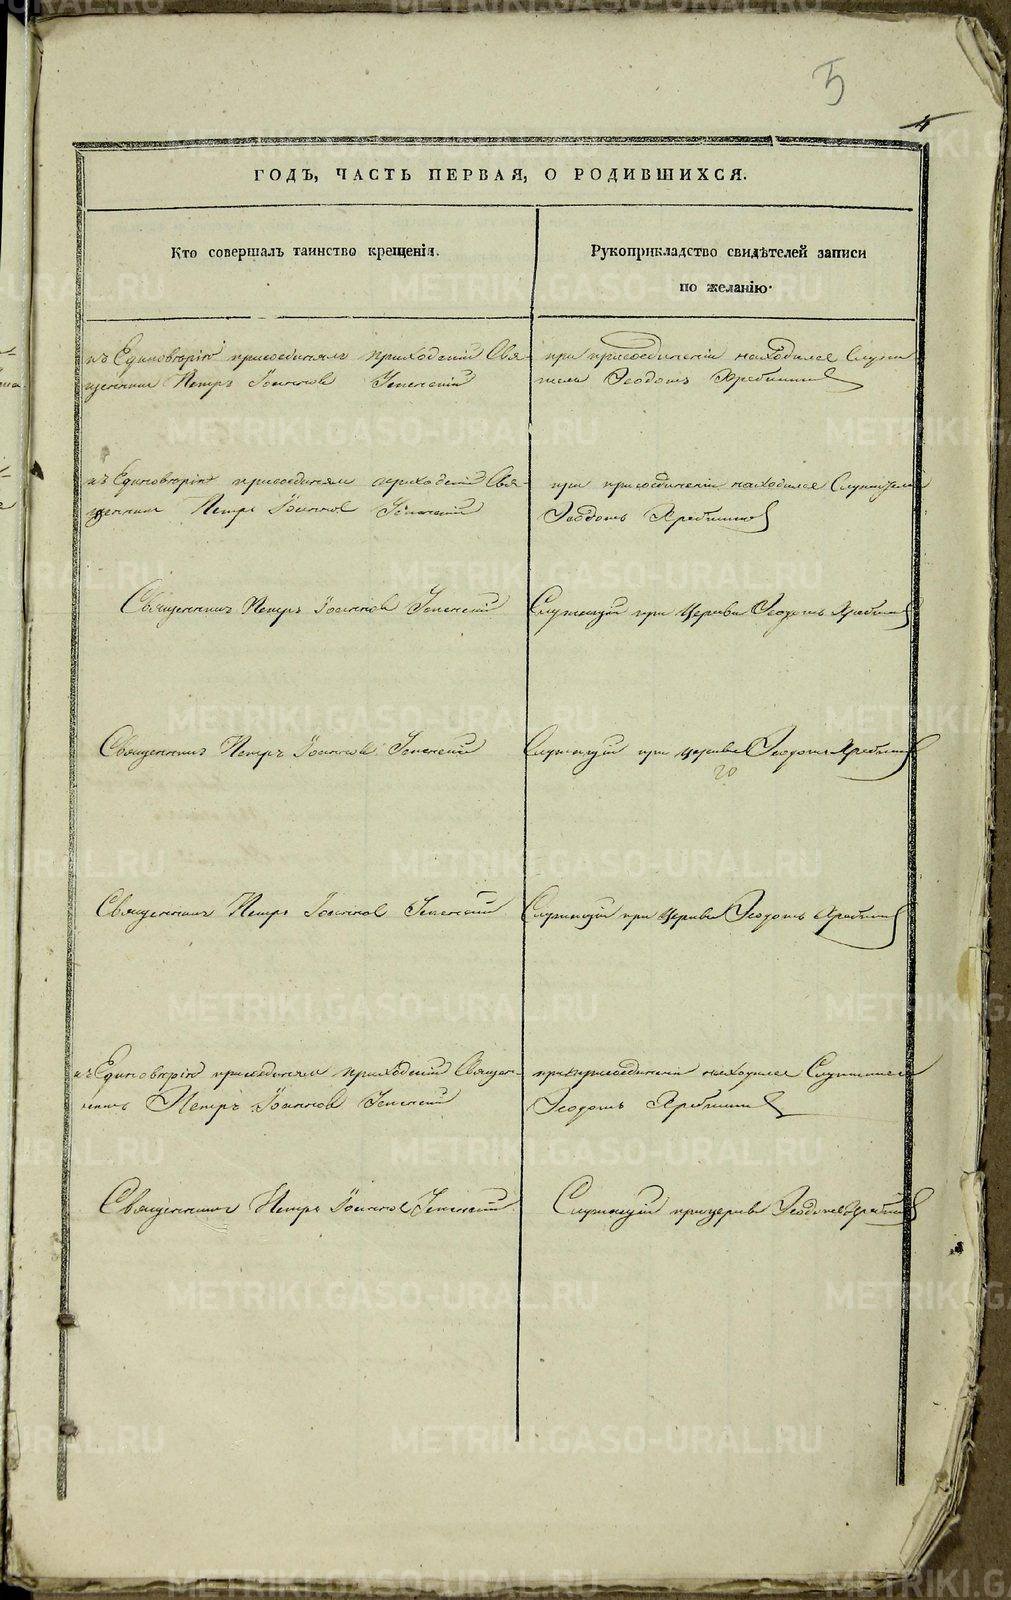 5
4
ГОДЪ, ЧАСТЬ ПЕРВАЯ, О РОДИВШИХСЯ.
Кто совершалъ таинство крещенія.
Рукоприкладство свидѣтелей записи
по желанію.
къ Единовѣрію присоединялъ приходскій Свя-
щенникъ Петръ Іоанновъ
при присоединеніи находился Служи
тель Ѳеодотъ
къ Единовѣрію присоединялъ приходскій Свя-
щенникъ Петръ Іоанновъ
при присоединеніи находился Служитель
Ѳеодотъ
Священникъ Петръ Іоанновъ
Служащій при Церкви Ѳеодотъ
Священникъ Петръ Іоанновъ
Служащій при церкви Ѳеодотъ
20
Священникъ Петръ Іоанновъ
Служащій при Церкви Ѳеодотъ
къ Единовѣрію присоединялъ приходскій Священ-
никъ Петръ Іоанновъ
при присоединеніи находился Служитель
Ѳеодотъ
Священникъ Петръ Іоанновъ
Служащій при церкви Ѳеодотъ
METRIKI.GASO-URAL.RU